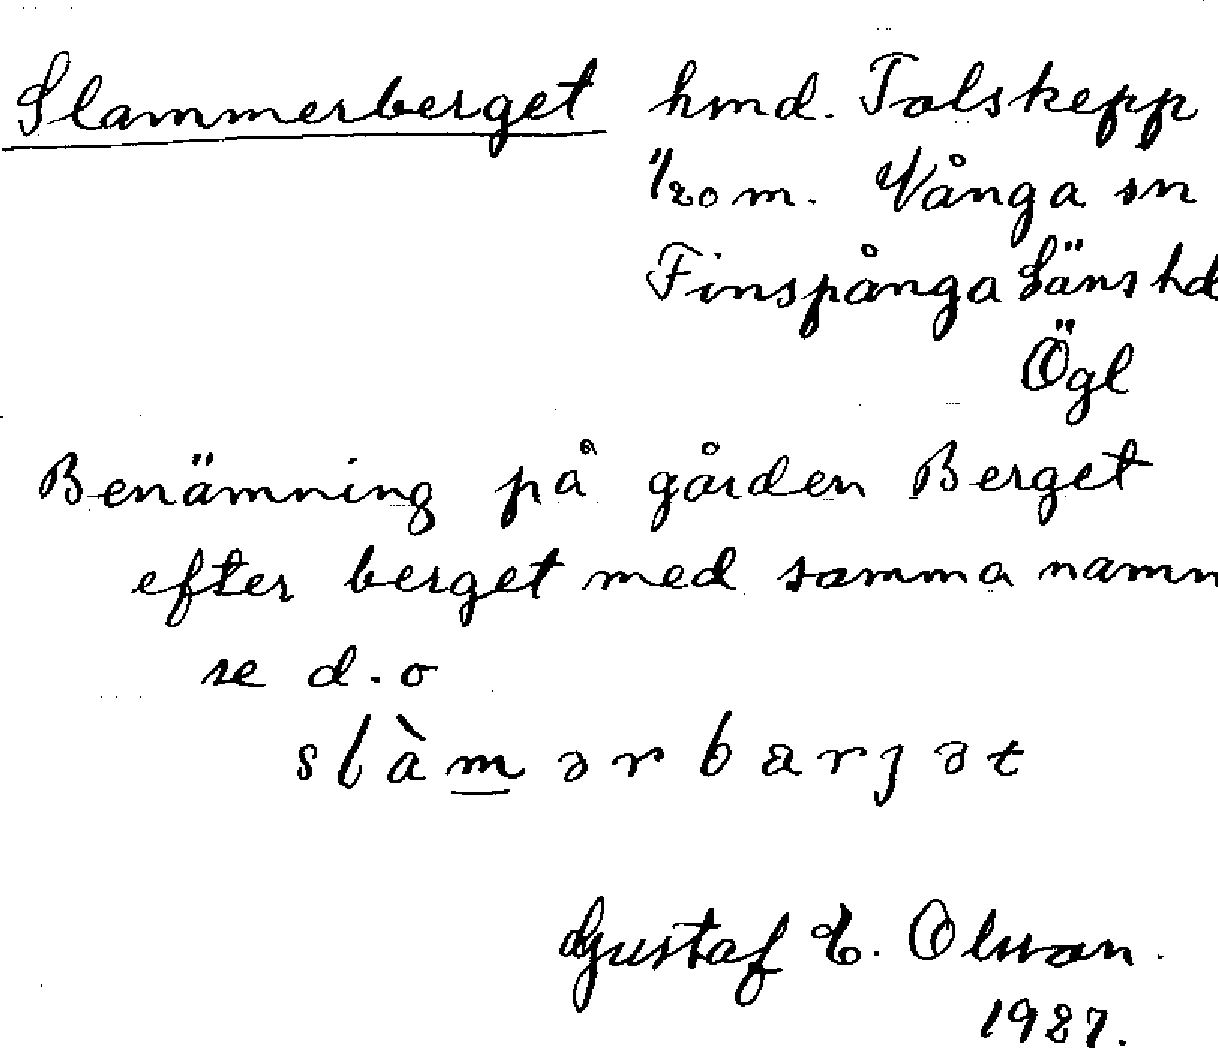 Slammerberget hmd. Tolskepp
1/20 m. Vånga sn
Finspånga Läns hd
Ögl
Benämning på gården Berget
efter berget med samma namn
se d.o
slàmərbarjət
Gustaf E. Olsson.
1927.